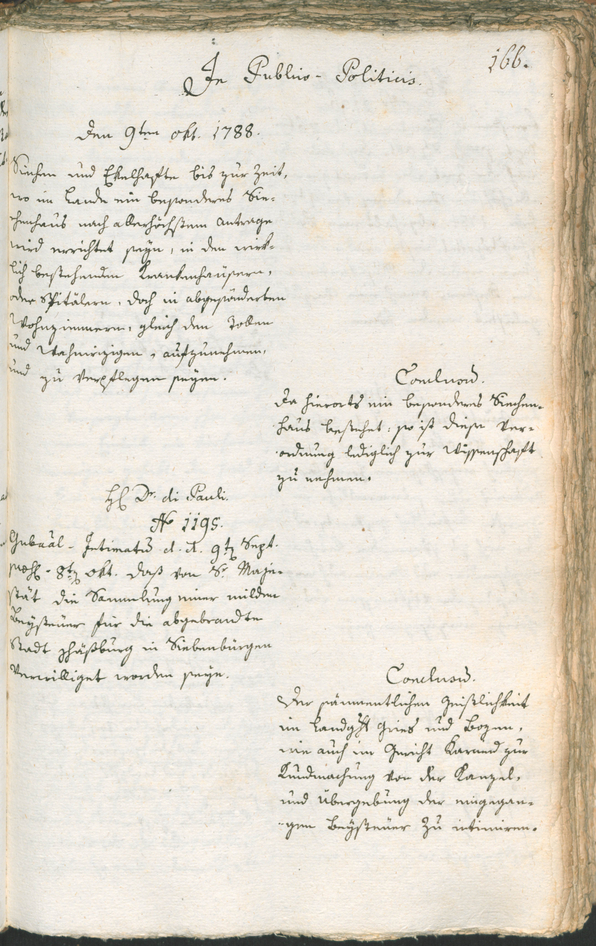 166.
In Publico-Politicis.
den 9ten Okt. 1788.
Siechen und Ekelhafte bis zur Zeit,
wo im Lande ein besonderes Sie-
chenhaus nach allerhöchstem Antrage
wird errichtet seyn, in den wirk-
lich bestehenden Krankenhäusern,
oder Spitälern, doch in abgesönderten
Wohnzimmern, gleich den Toben
und Wahnwizigen, aufzunehmen,
und zu verpflegen seyen.
Conclusum.
Da hierorts ein besonderes Siechen-
haus bestehet, so ist diese Ver-
ordnung lediglich zur Wissenschaft
zu nehmen.
H Dr. di Pauli.
No 1195.
Gubräal-Intimatum d. d. 9t Sept
8t Okt. daß von Sr Maje-
stät die Sammlung einer milden
Beysteuer für die abgebrandte
Stadt Schäßburg in Siebenbürgen
verwilliget worden seye.
Conclusum.
Der sämmentlichen Geistlichkeit
im Landght Gries und Bozen,
wie auch im Gericht Karneid zur
Kundmachung von der Kanzel,
und Übergebung der eingegan-
genen Beysteuer zu intimiren.